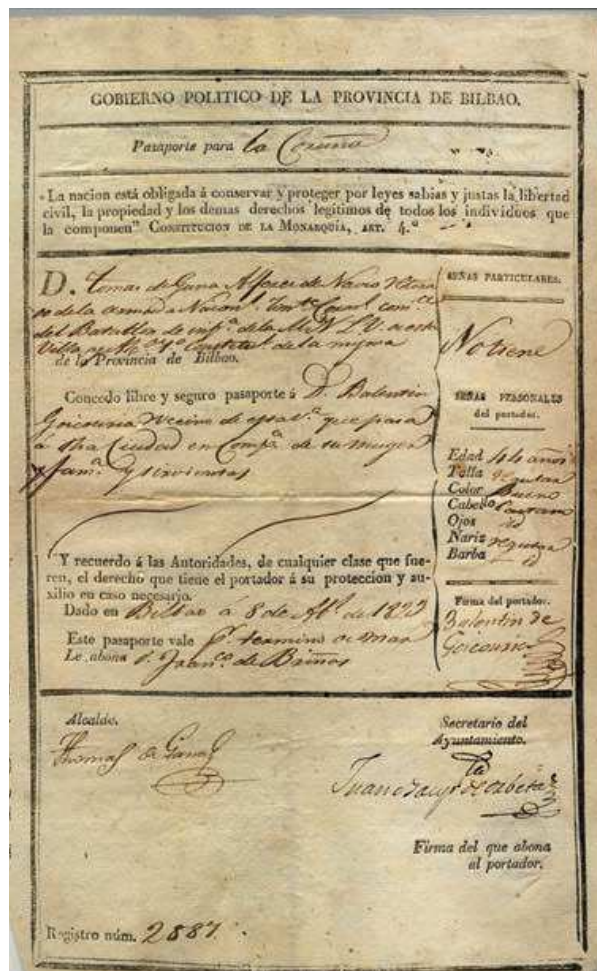 GOBIERNO POLITICO DE LA PROVINCIA DE BILBAO.
Pasaporte para la Coruña
"La nacion está obligada á conservar y proteger por leyes sabias y justas la libertad
civil, la propiedad y los demas derechos legitimos de todos los individuos que
la componen" CONSTITUCION DE LA MONARQUÍA, ART. 4.º
D. Tomas de Gana Alferez de Navio
de la Armada
del Batallon de de la
Villa
de la Provincia de Bilbao.
Concedo libre y seguro pasaporte á D. Balentin
Goicouria Vecino de esta que pasa
á dha Ciudad en Comp.ª de su muger
y fam.ª y sirvientas
Y recuerdo á las Autoridades, de cualquier clase que fue-
ren, el derecho que tiene el portador á su proteccion y au-
xilio en caso necesario.
Dado en Bilbao á 8 de Ab.l de 1823
Este pasaporte vale p.r termino de
Le abona D. Fran.co de Briñas
SEÑAS PARTICULARES.
No tiene
SEÑAS PERSONALES
del portador.
Edad 44 años
Talla regular
Color Bueno
Cabello Castaño
Ojos id
Nariz regular
Barba id
Firma del portador.
Balentin de
Goicouria
Alcalde.
Thomas de Gana
Secretario del
Ayuntamiento.
Firma del que abona
al portador.
Registro núm. 2887.